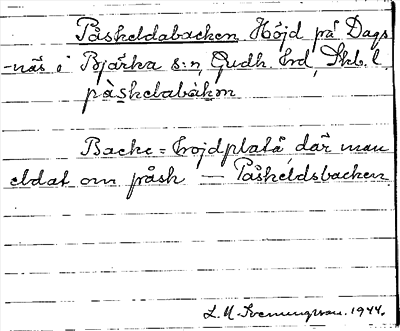 Påskeldabacken, Höjd på Dags
-näs i Bjärka s:n, Gudh. Erd, Skb. l.
påskelabàkən
Backe = Erojdplatå där man
eldat om påsk — Påskeldsbacken
L. M. Svenungsson. 1944.